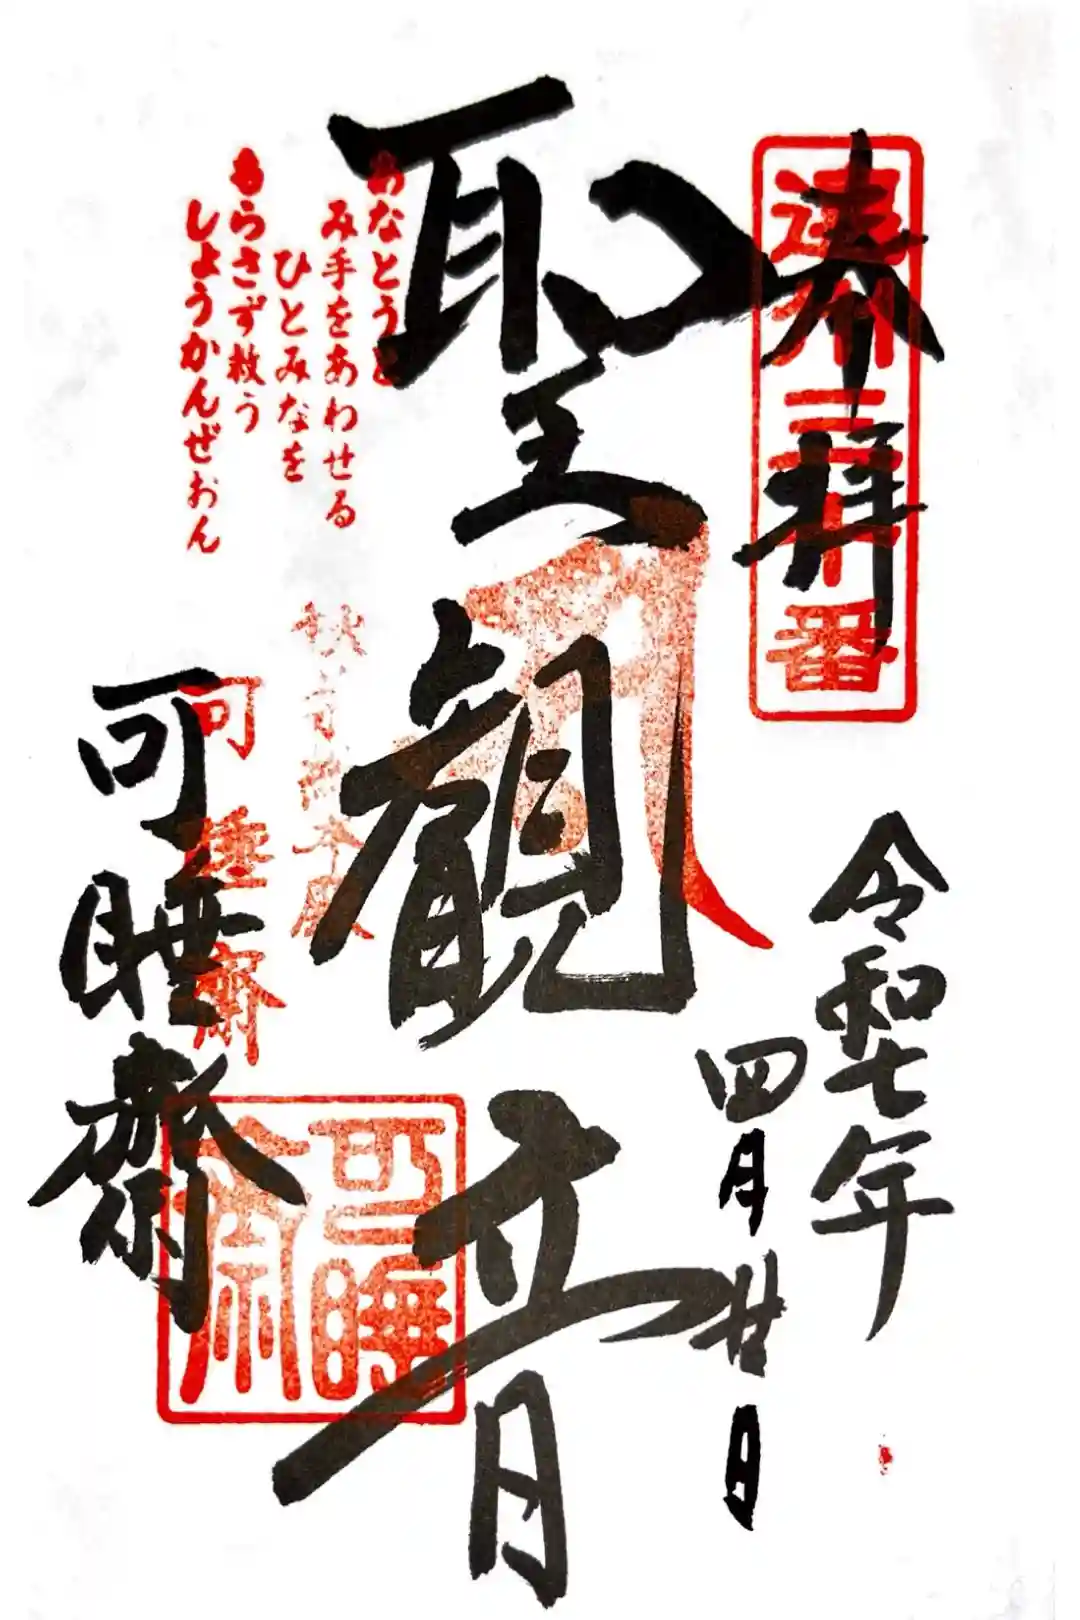 奉拝
遠州三十番
令和七年
四月廿日
聖観音
あなとうと
み手をあわせる
ひとみなを
もらさず救う
しようかんぜおん
秋葉総本殿
可睡齋
可睡齋
可睡齋